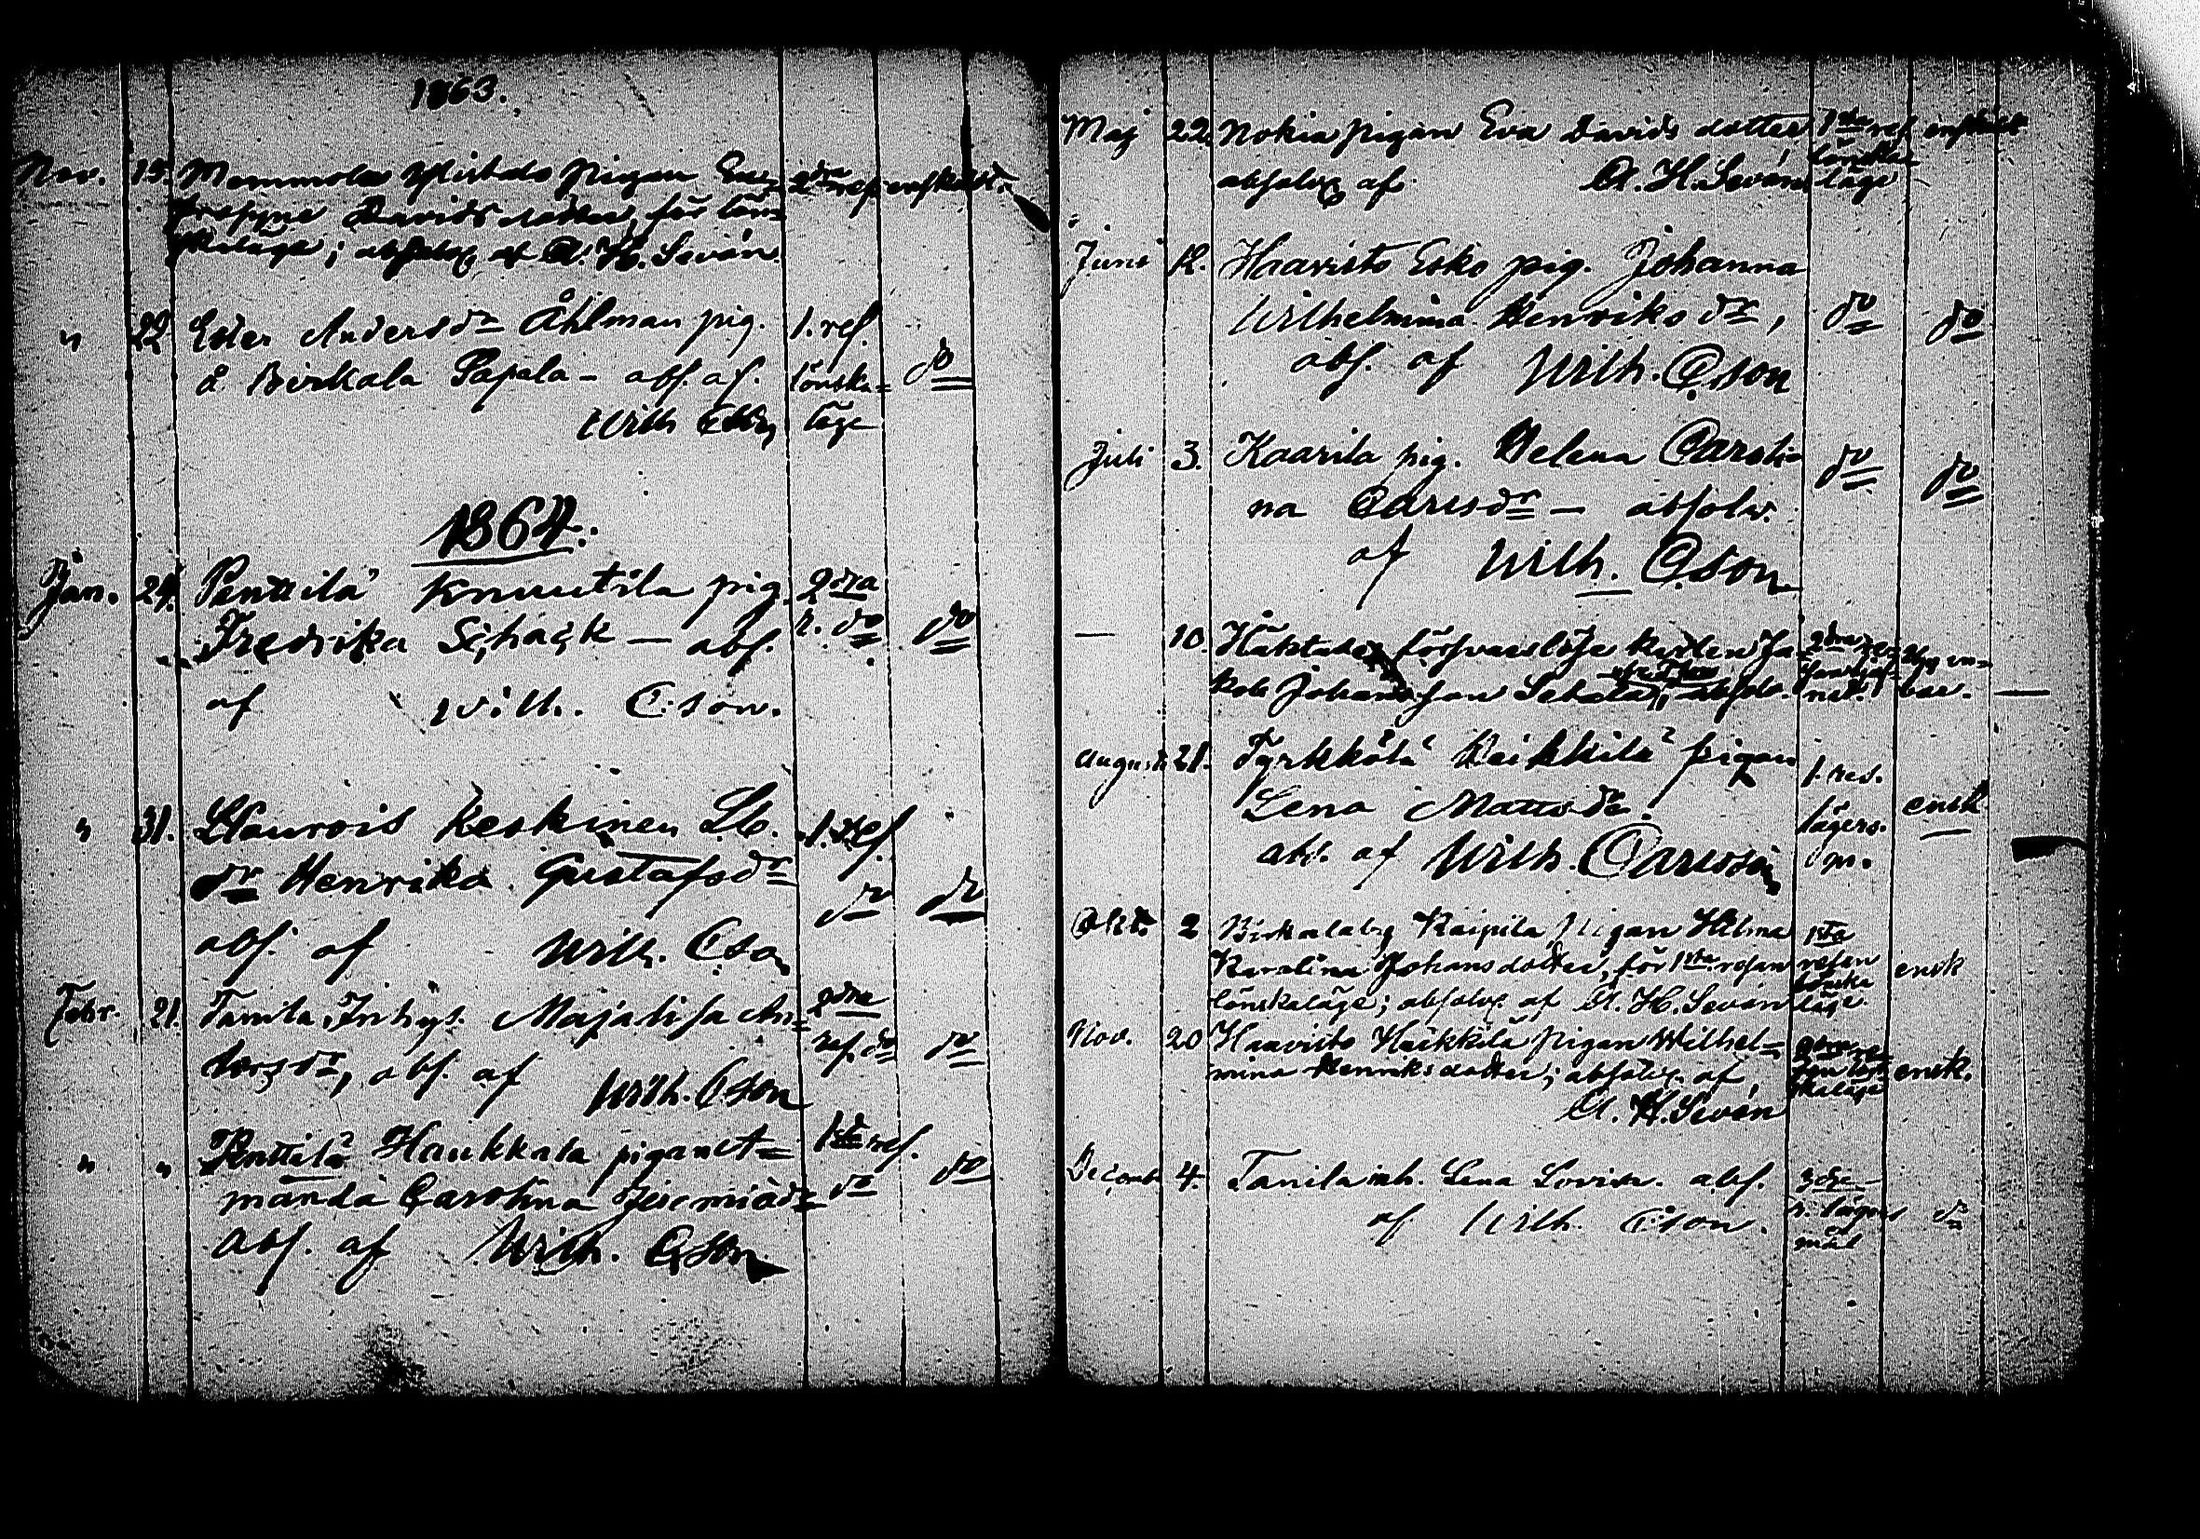 1863.
Nov. 15. Pigan 2dra ref enskildt.
Davids dotter, för löns
kaläge; absolv. af A. H. Sevón
" 22 Ester Anders dr Åhlman pig. 1. ref.
å Birkala Papala - abs. af. lönska= do
Wilh läge
1864.
Jan. 24. Penttilä Knuutila pig. 2dra
Fredrika Schack — abs. r. do do
af Wilh. C:son.
" 31. Keskinen 1. Ref.
dr Henrika Gustafsdr do do
abs. af Wilh. C:son
Febr. 21. Tanila Inhys. Majalisa An= 2dra
dersdr, abs. af ref. do do
Wilh. C:son
" " Penttilä Haukkala pigan A= 1sta ref.
manda Carolina Jeremiädr do do
Abs. af Wilh. C:son
Maj 22. Nokia pigan Eva Davids dotter 1sta ref enskildt
absolv. af A. H. Sevón lönska
läge
Juni 12. Haavisto Esko pig. Johanna
Wilhelmina Henriks dr, do do
abs. af Wilh. C:son
Juli 3. Kaarila pig. Helena Caroli= do do
na Carlsdr — absolv.
af Wilh. C:son
— 10. Häktade försvarslöse karlen Ja= 2dra
kob Johansson absolv. bar. —
August 21. Tyrkkölä Heikkilä pigan 1. res.
Lena Mattsdr. lägers. ensk
abs. af Wilh. Carlsson m.
Oktb. 2 Birkalaby Raipila Pigan Hilma 1sta
Karolina Johansdotter, för 1sta resan resan ensk
lönskaläge; absolv. af A. H. Sevón lönska läge
Nov. 20 Haavisto Häikkilä pigan Wilhel=
mina Henriksdotter; absolv. af, ensk.
A. H. Sevón kaläge
Decemb 4. Tanila inh. Lena Lovisa. abs. 3dje
af Wilh. C:son. r. lägers do
mål